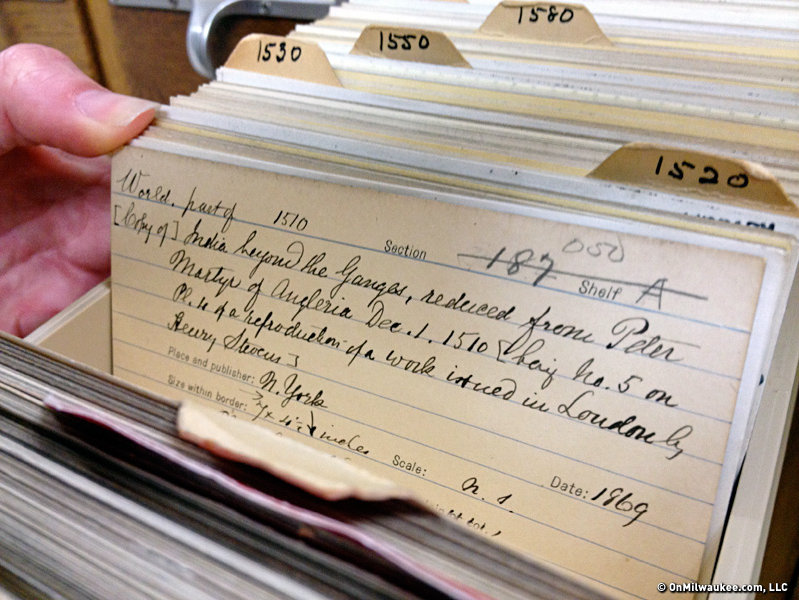 1580
1530
1550
1520
World. part of 1510
050
Section 187 Shelf A
[Copy of] India beyond the Ganges, reduced from Peter
Martyr of Angleria Dec. 1. 1510 [being No. 5 on
Pl. of a reproduction of a work issued in London by
Henry Stevens]
Place and publisher: N. York
Size within border: inches
Scale: n. s.
Date: 1869
© OnMilwaukee.com, LLC